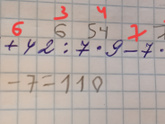 6 3 4 7
6 54
+42:7·9-7·
-7=110